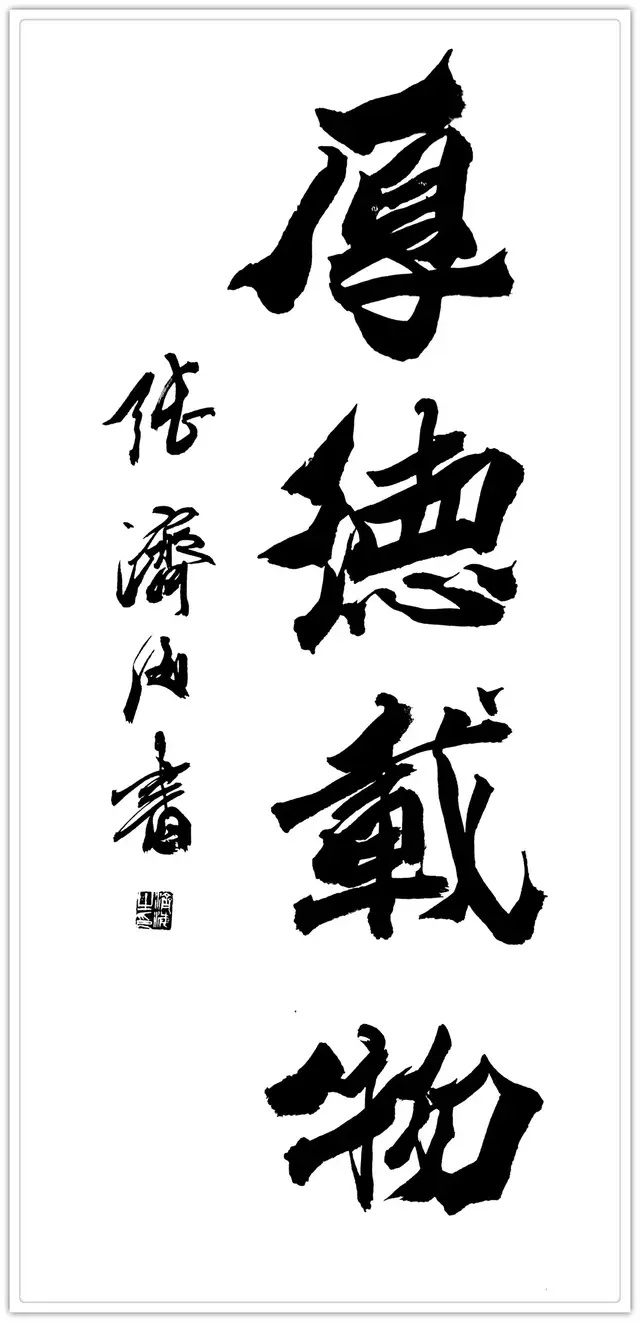 厚德載物
張濟海書